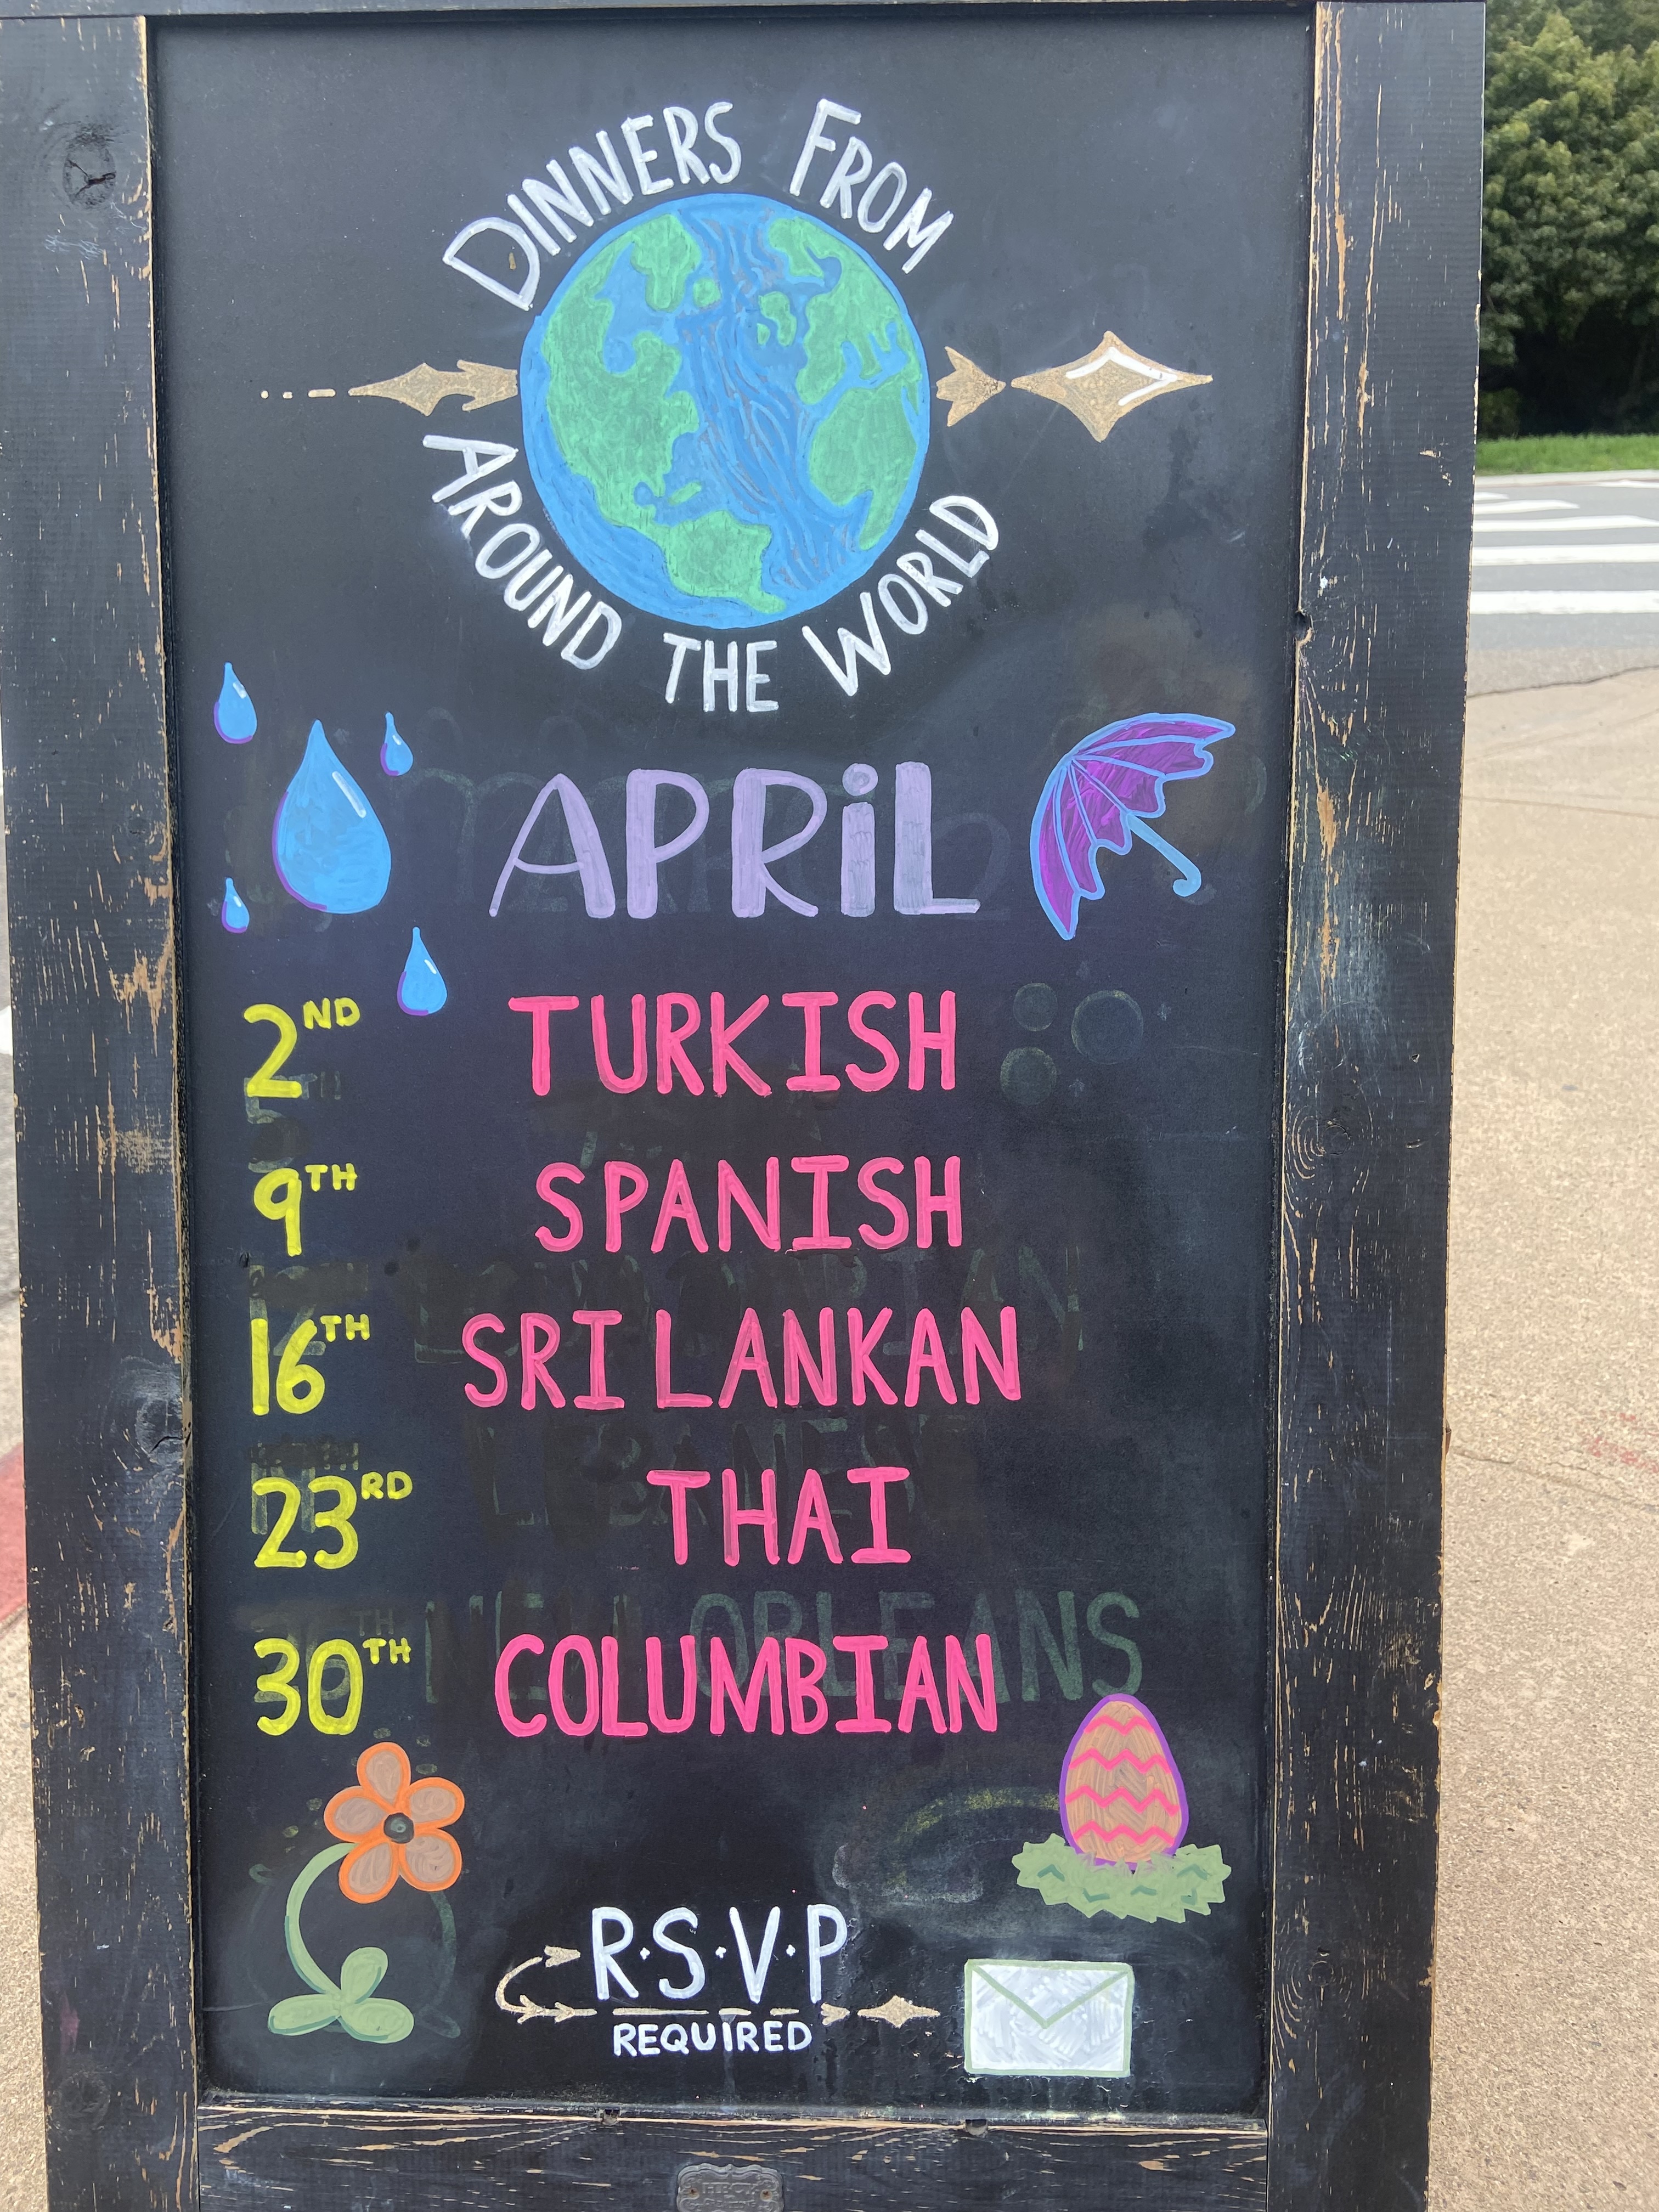 DINNERS FROM
AROUND THE WORLD
APRiL
2ND TURKISH
9TH SPANISH
16TH SRI LANKAN
23RD THAI
30TH COLUMBIAN
NEW ORLEANS
LEBANESE
R·S·V·P
REQUIRED